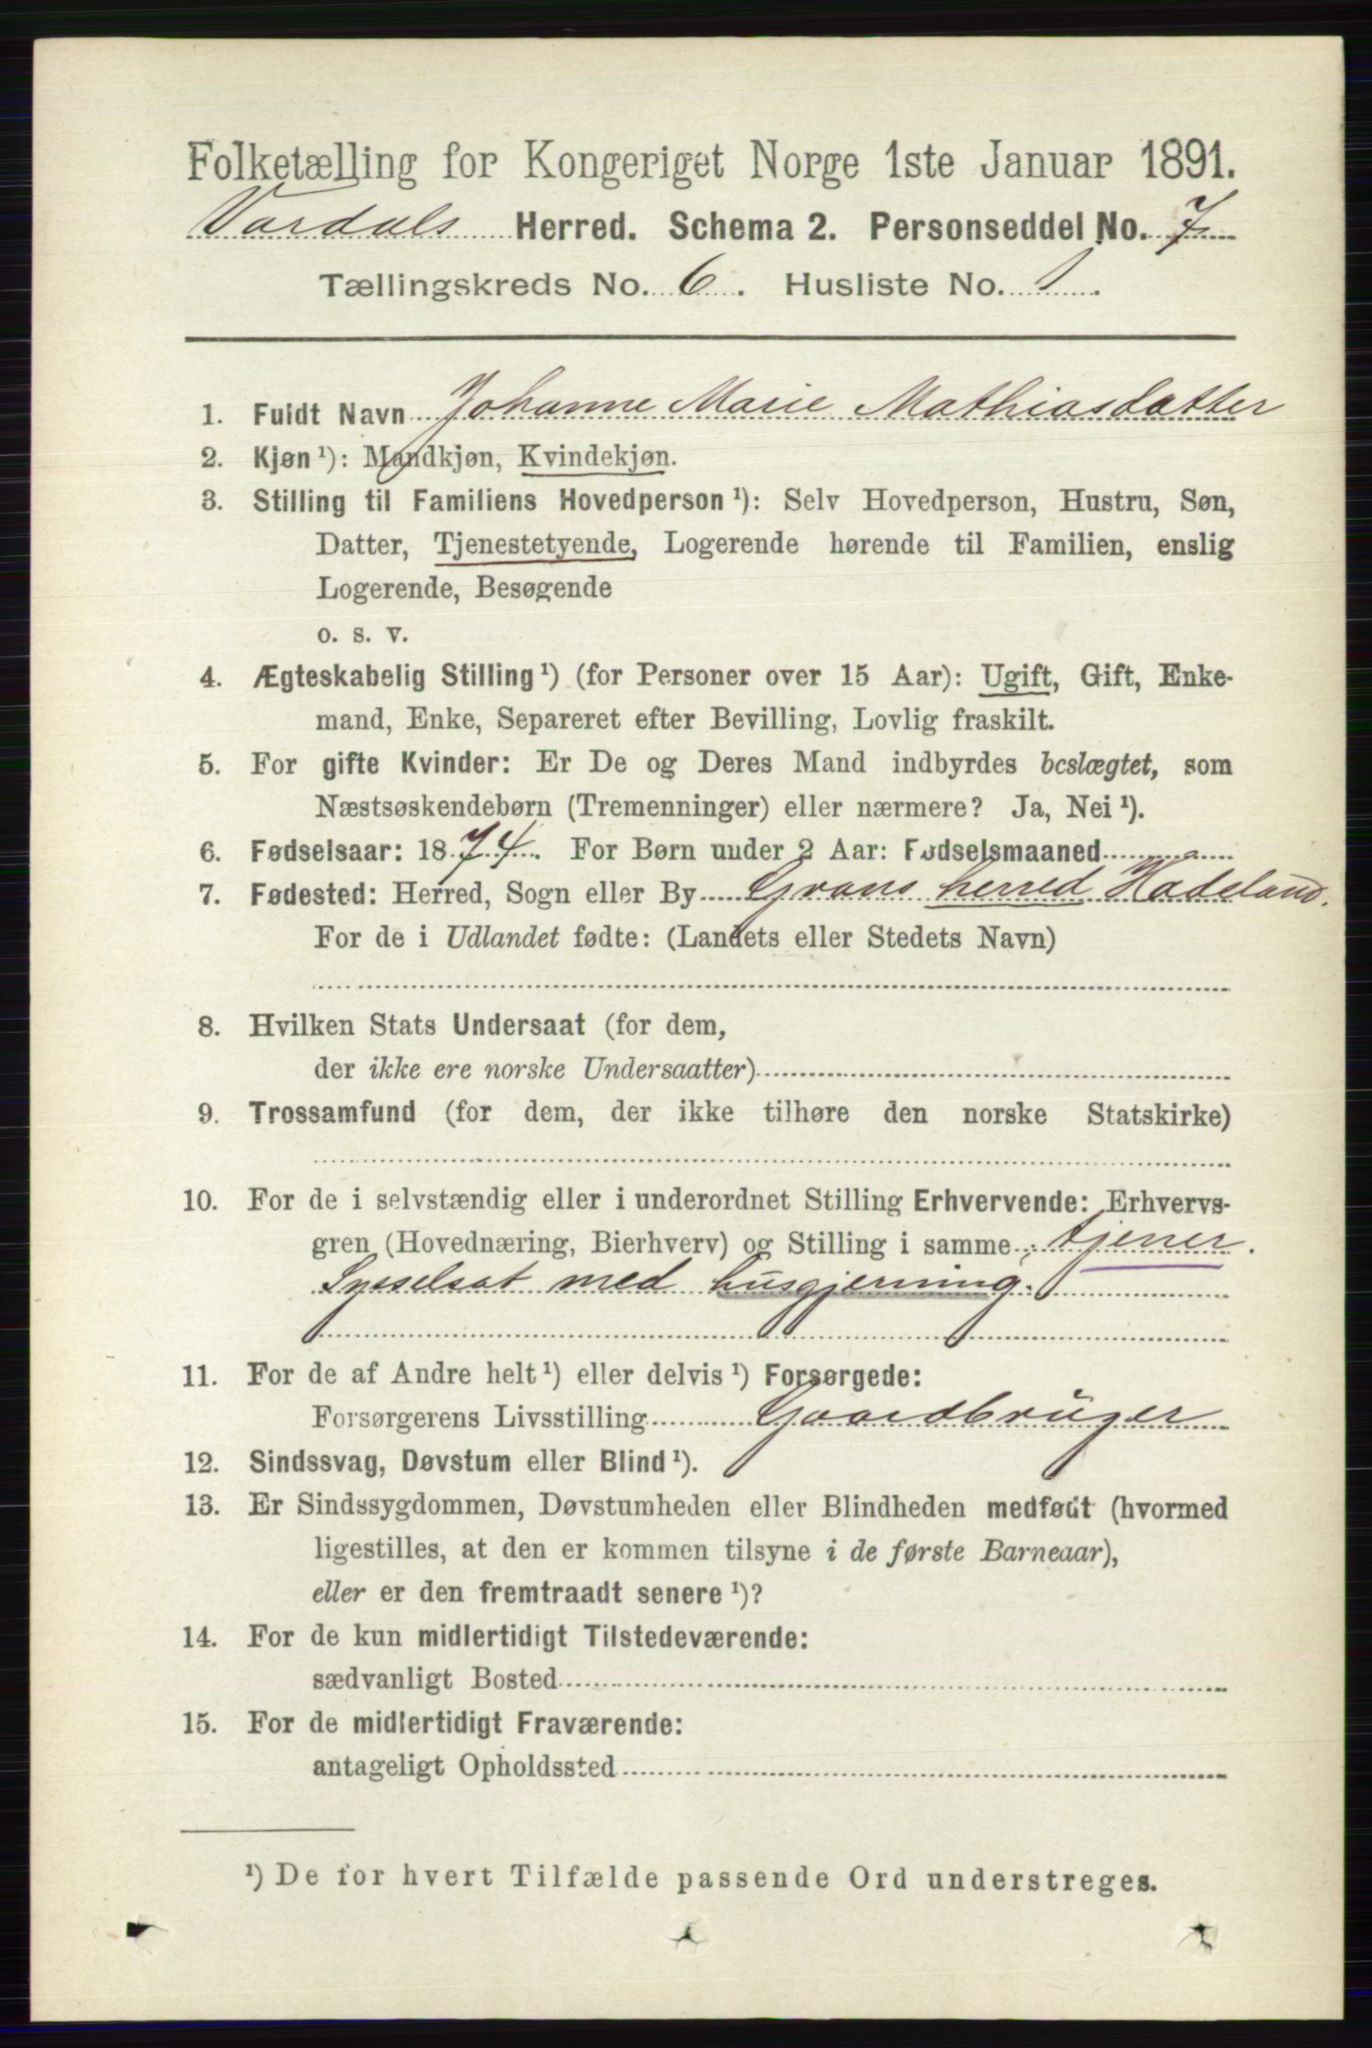 Folketælling for Kongeriget Norge 1ste Januar 1891.
Vardals Herred. Schema 2. Personseddel No. 7
Tællingskreds No. 6. Husliste No. 1.
1. Fuldt Navn Johanne Marie Mathiasdatter
2. Kjøn ¹): Mandkjøn, Kvindekjøn.
3. Stilling til Familiens Hovedperson ¹): Selv Hovedperson, Hustru, Søn,
Datter, Tjenestetyende, Logerende hørende til Familien, enslig
Logerende, Besøgende
o. s. v.
4. Ægteskabelig Stilling ¹) (for Personer over 15 Aar): Ugift, Gift, Enke-
mand, Enke, Separeret efter Bevilling, Lovlig fraskilt.
5. For gifte Kvinder: Er De og Deres Mand indbyrdes beslægtet, som
Næstsøskendebørn (Tremenninger) eller nærmere? Ja, Nei ¹).
6. Fødselsaar: 1874. For Børn under 2 Aar: Fødselsmaaned
7. Fødested: Herred, Sogn eller By Grans herred Hadeland.
For de i Udlandet fødte: (Landets eller Stedets Navn)
8. Hvilken Stats Undersaat (for dem,
der ikke ere norske Undersaatter)
9. Trossamfund (for dem, der ikke tilhøre den norske Statskirke)
10. For de i selvstændig eller i underordnet Stilling Erhvervende: Erhvervs-
gren (Hovednæring, Bierhverv) og Stilling i samme: tjener.
Sysselsat med husgjerning.
11. For de af Andre helt ¹) eller delvis ¹) Forsørgede:
Forsørgerens Livsstilling Gaardbrüger
12. Sindssvag, Døvstum eller Blind ¹).
13. Er Sindssygdommen, Døvstumheden eller Blindheden medfødt (hvormed
ligestilles, at den er kommen tilsyne i de første Barneaar),
eller er den fremtraadt senere ¹)?
14. For de kun midlertidigt Tilstedeværende:
sædvanligt Bosted
15. For de midlertidigt Fraværende:
antageligt Opholdssted
¹) De for hvert Tilfælde passende Ord understreges.